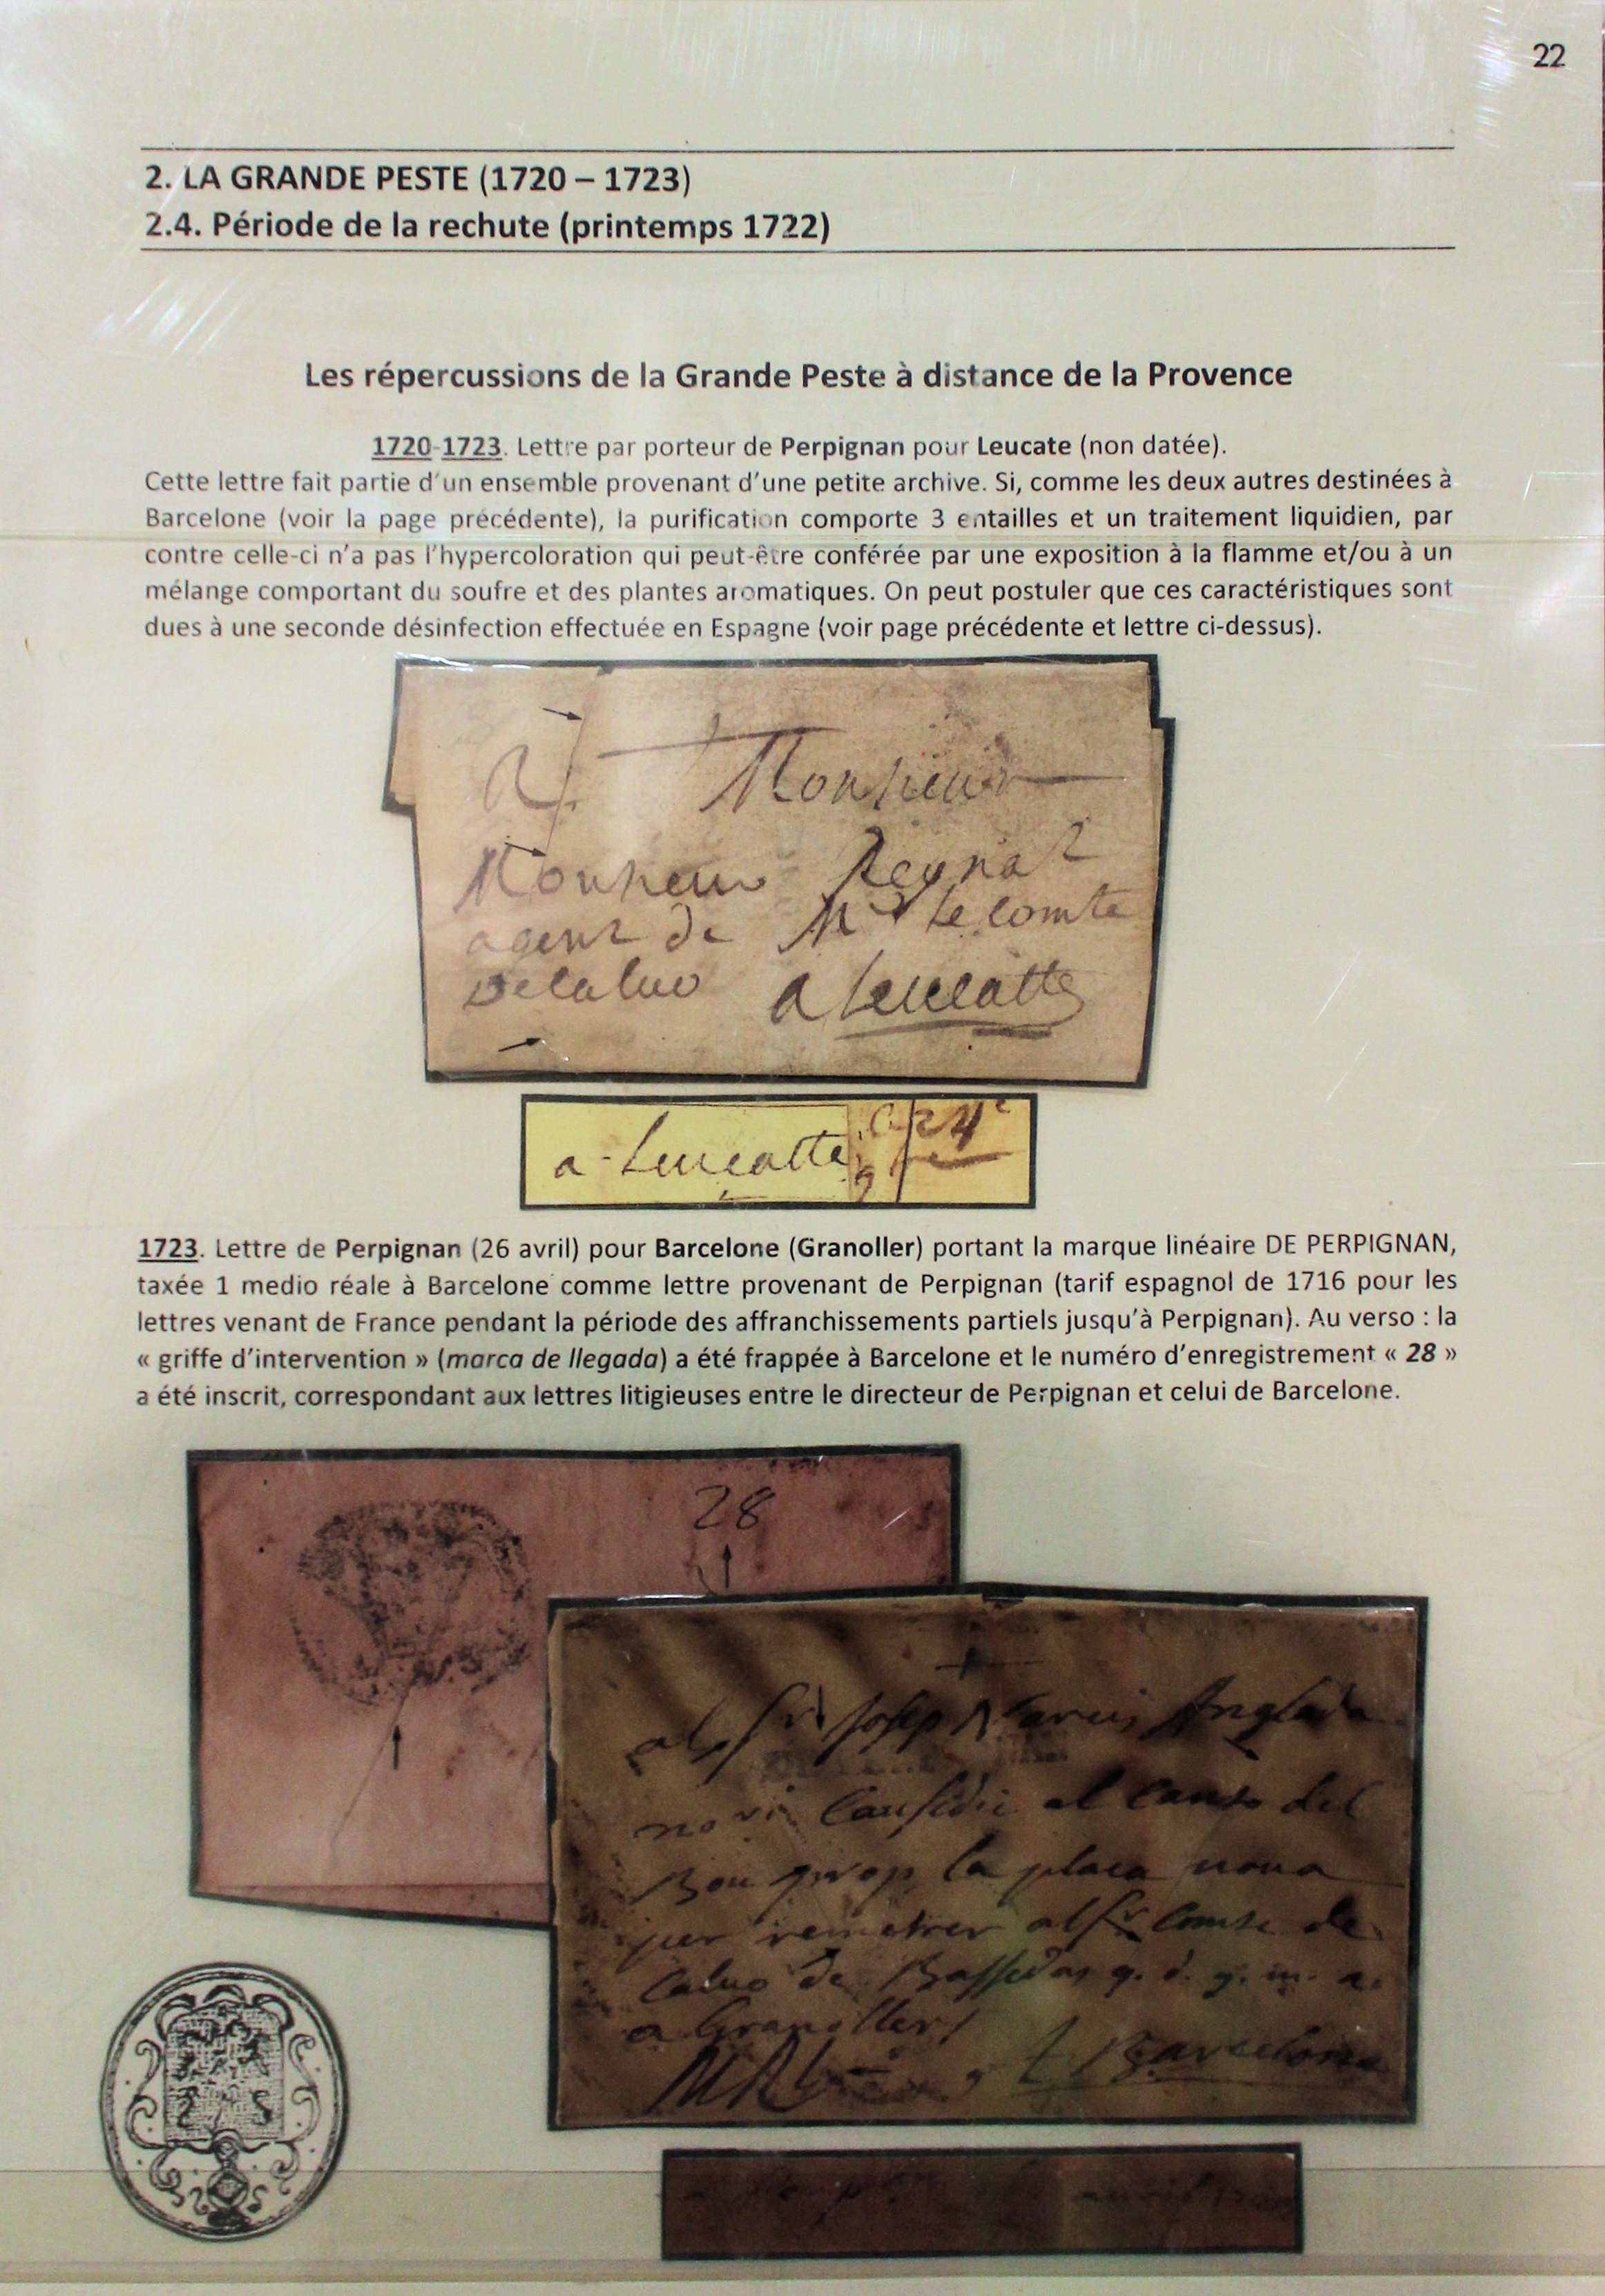 22
2. LA GRANDE PESTE (1720 – 1723)
2.4. Période de la rechute (printemps 1722)
Les répercussions de la Grande Peste à distance de la Provence
1720-1723. Lettre par porteur de Perpignan pour Leucate (non datée).
Cette lettre fait partie d'un ensemble provenant d'une petite archive. Si, comme les deux autres destinées à
Barcelone (voir la page précédente), la purification comporte 3 entailles et un traitement liquidien, par
contre celle-ci n'a pas l'hypercoloration qui peut-être conférée par une exposition à la flamme et/ou à un
mélange comportant du soufre et des plantes aromatiques. On peut postuler que ces caractéristiques sont
dues à une seconde désinfection effectuée en Espagne (voir page précédente et lettre ci-dessus).
A Monsieur
Monsieur Reynal
agent de Mr le comte
Decaluo a leucatte
a Leucatte
1723. Lettre de Perpignan (26 avril) pour Barcelone (Granoller) portant la marque linéaire DE PERPIGNAN,
taxée 1 medio réale à Barcelone comme lettre provenant de Perpignan (tarif espagnol de 1716 pour les
lettres venant de France pendant la période des affranchissements partiels jusqu'à Perpignan). Au verso : la
« griffe d'intervention » (marca de llegada) a été frappée à Barcelone et le numéro d'enregistrement « 28 »
a été inscrit, correspondant aux lettres litigieuses entre le directeur de Perpignan et celui de Barcelone.
28
al Sr Josep Anglada
Causidic al carrer del
Bou prop la plaça noua
per remetrer al Sr Comte de
Caluo de Bassedas q. d. g. m. a.
a Granollers
Barcelona